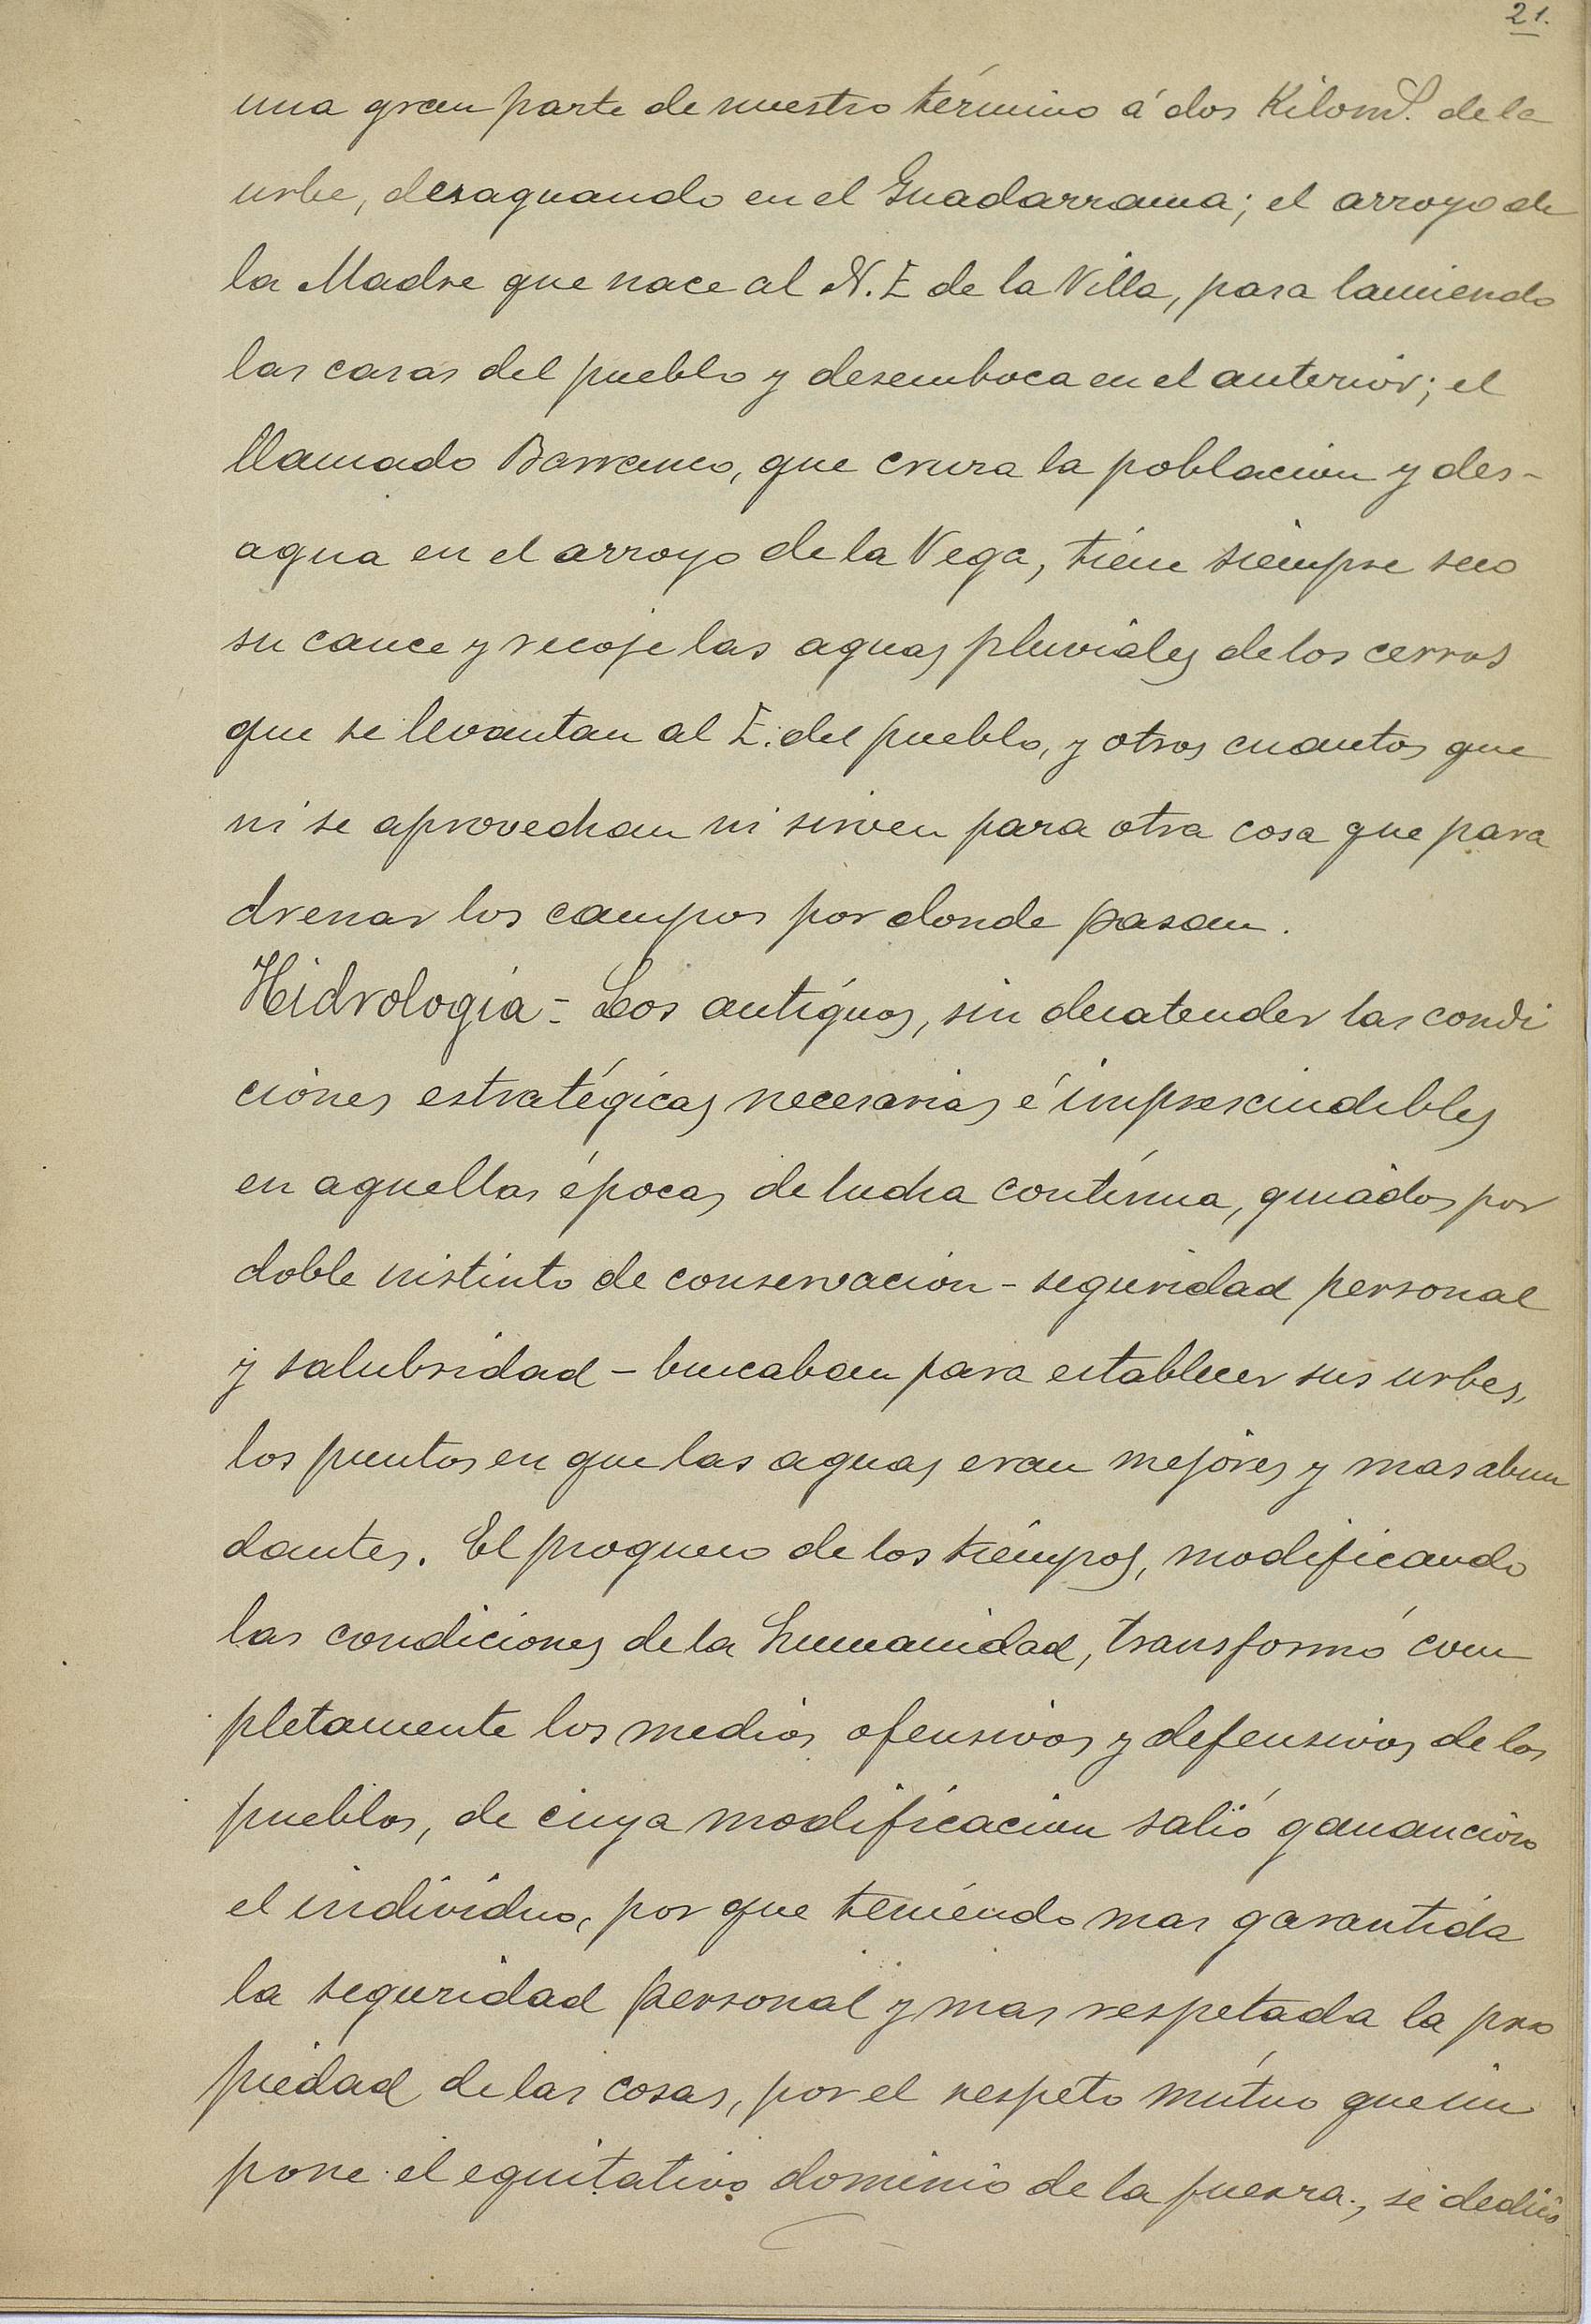 21.
una gran parte de nuestro término á dos KilomS. de la
urbe, desaguando en el Guadarrama; el arroyo de
la Madre que nace al N. E de la Villa, pasa lamiendo
las casas del pueblo y desemboca en el anterior; el
llamado Barranco, que cruza la poblacion y des-
agua en el arroyo de la Vega, tiene siempre seco
su cauce y recoje las aguas pluviales de los cerros
que se levantan al E. del pueblo, y otros cuantos que
ni se aprovechan ni sirven para otra cosa que para
drenar los campos por donde pasan.
Hidrología - Los antiguos, sin desatender las condi
ciones estratégicas necesarias é imprescindibles
en aquellas épocas de lucha contínua, guiados por
doble instinto de conservacion - seguridad personal
y salubridad - buscaban para establecer sus urbes,
los puntos en que las aguas eran mejores y mas abun
dantes. El progreso de los tiempos, modificando
las condiciones de la humanidad, transformó com
pletamente los medios ofensivos y defensivos de los
pueblos, de cuya modificacion salió ganancioso
el individuo, por que teniendo mas garantida
la seguridad personal y mas respetada la pro
piedad de las cosas, por el respeto mútuo que im
pone el equitativo dominio de la fuerza, se dedicó